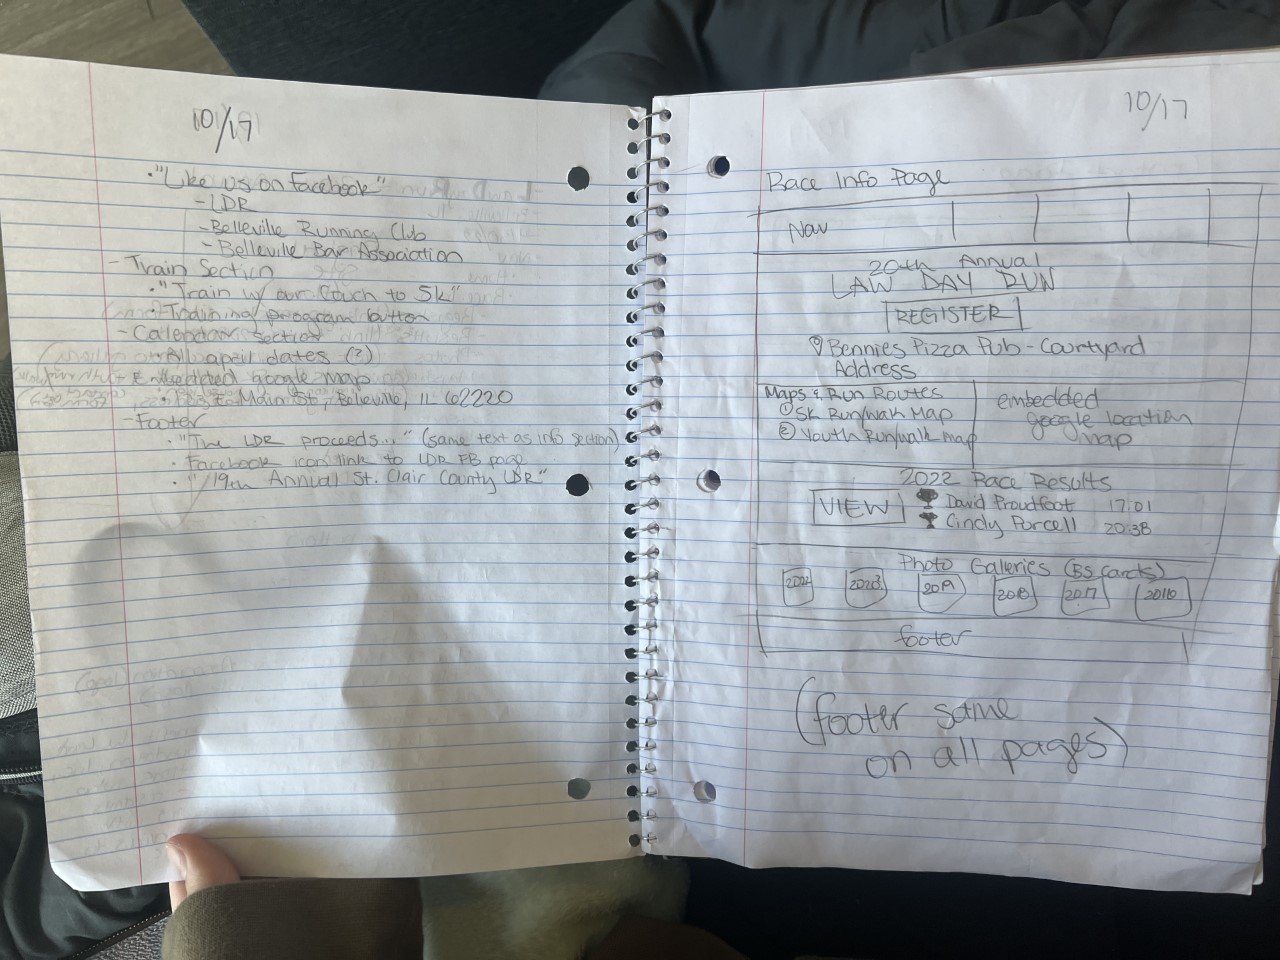 10/17
• "Like us on facebook"
- LDR
- Belleville Running Club
- Belleville Bar Association
- Train Section
• "Train w/ our Couch to 5k"
• Training program button
- Calendar section
• All april dates (?)
- Embedded google map
Main St, Belleville, IL 62220
- Footer
• "The LDR proceeds..." (same text as info section)
• Facebook icon link to LDR FB page
• "19th Annual St. Clair County LDR"
10/17
Race Info Page
Nav
20th Annual
LAW DAY RUN
REGISTER
Bennies Pizza Pub - Courtyard
Address
Maps & Run Routes
① 5k Run/walk Map
② Youth Run/walk map
embedded
google location
map
2022 Race Results
VIEW
David Proudfoot 17:01
Cindy Purcell 20:38
Photo Galleries (BS cards)
2022 2019 2018 2017 2016
footer
(footer same
on all pages)